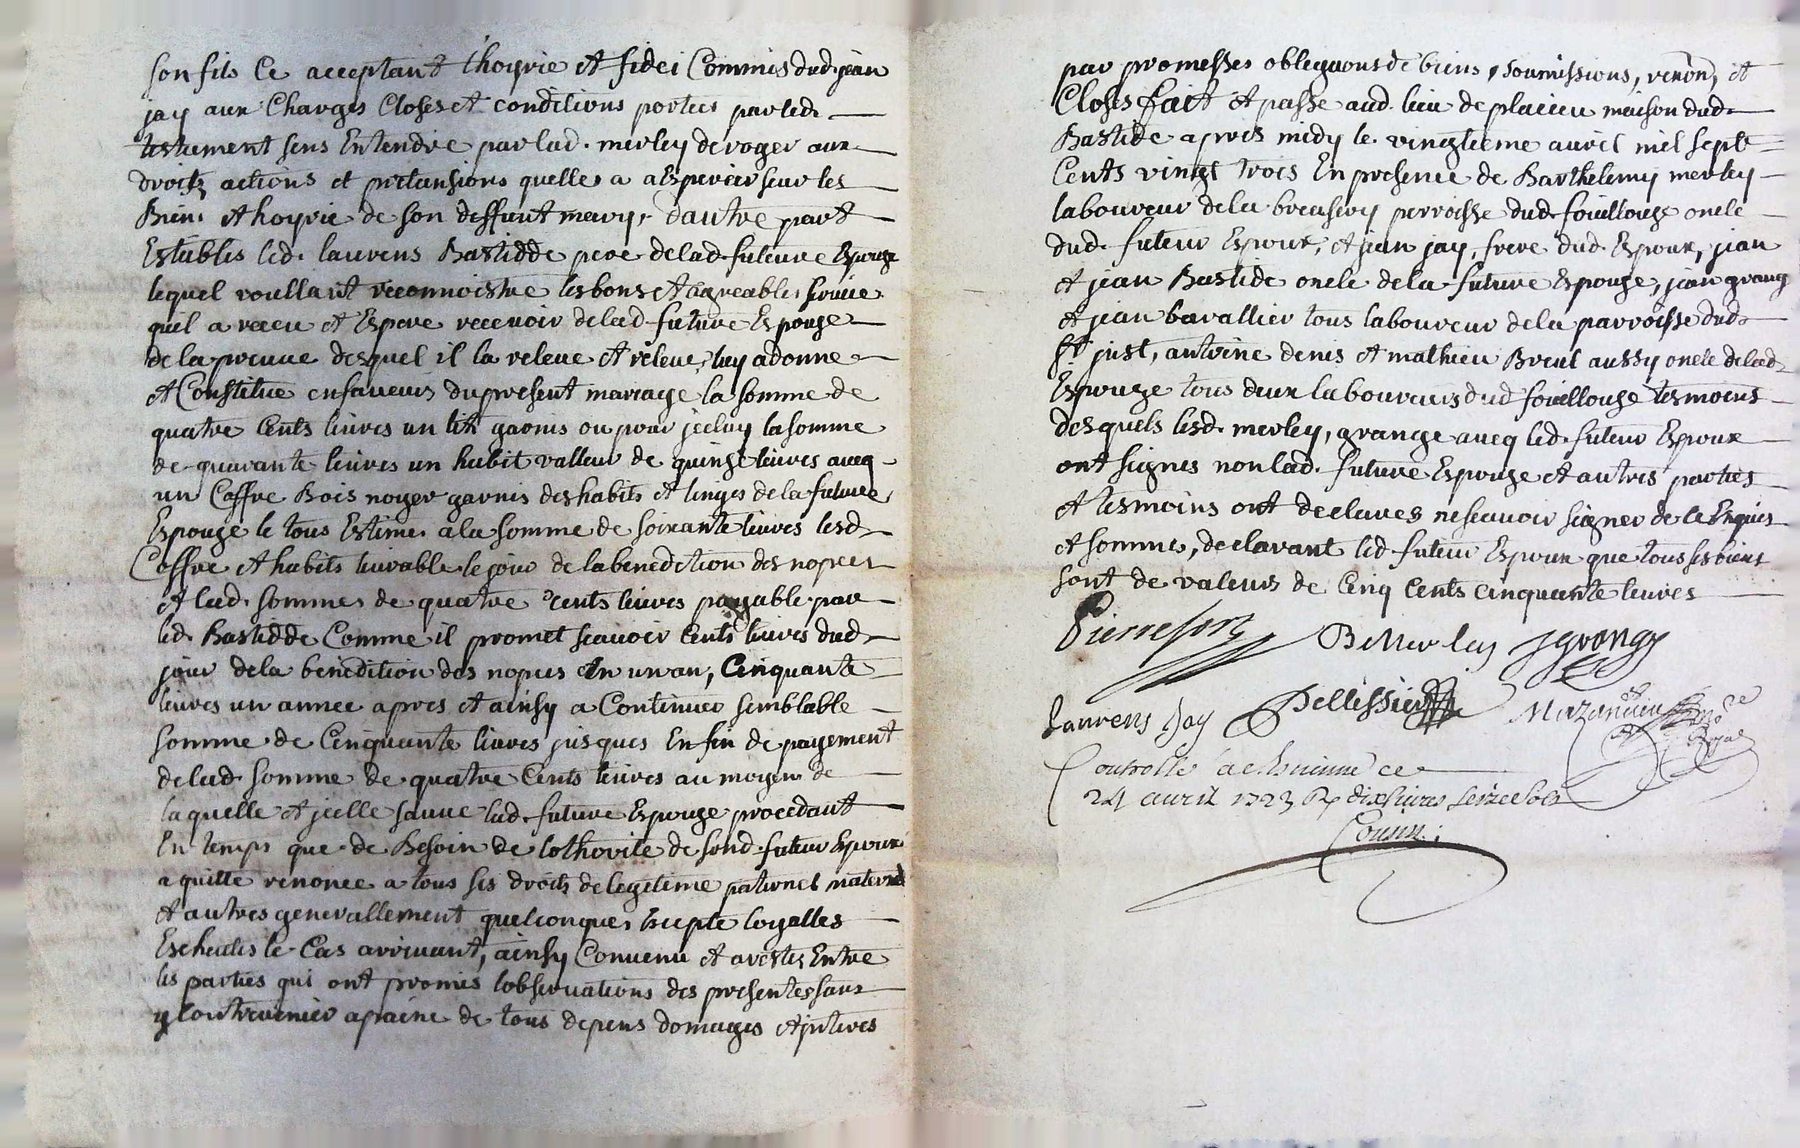 son fils Ce acceptant lhoyrie et fidei Commis dud. jean
jay aux Charges Closes et conditions portees par led.
testament sens Entendre par lad. merley deroger aux
droitz actions et pretansions quelles a a Esperer seur les
Biens et hoyrie de son deffunt mary, dautre part
Establis led. laurens Bastidde pere delad. futeure Espouze
lequel voullant reconnoistre les bons et agreables service
quil a receu et Espere recevoir delad. future Espouze
de la preuve desquel il la releve et releve, luy a donne
et Constitue en faveurs du present mariage la somme de
quatre Cents livres un lit garnis ou pour jceluy la somme
de quarante livres un habit valleur de quinze livres aveq
un Coffre Bois noyer garnis des habits et linges de la future
Espouze le tous Estimes a la somme de soixante livres lesd.
Coffre et habits livrable le jour de la benediction des nopces
et lad. sommes de quatre Cents livres payable par
led. Bastidde Comme il promet scavoir Cents livres dud.
jour dela benedition des nopces En un an, Cinquante
livres un annee apres et ainsy a Continuer semblable
somme de Cinquante livres jusques En fin de payement
delad. somme de quatre Cents livres au moyen de
laquelle et jcelle sauve lad. future Espouze procedant
En temps que de Besoin de lothorite de sond. futeur Espoux
a quitte renonce a tous ses droits de legitime paternel maternel
et autres generallement quelconques Excepte loyalles
Escheutes le Cas arrivant, ainsy Convenu et arestes Entre
les parties qui ont promis lobservations des presentes sans
y Contrevenir a paine de tous depens domages et jnteres
par promesses obligations de biens, soumissions, renon, et
Closes fait et passe aud. lieu de plaicieu maison dud.
Bastide apres midy le vingtieme avril mil sept
Cents vingt trois En presence de Barthelemy merley
laboureur de la parroisse dud. fouillouze oncle
dud. futeur Espoux, et jean jay, frere dud. Espoux, jean
et jean Bastide oncle de la future Espouze, jean grang
et jean bavallier tous laboureur de la parroisse dud.
St just, antoine denis et mathieu Breul aussy oncle delad.
Espouze tous deux laboureurs dud fouillouze tesmoins
desquels lesd. merley, grange aveq led. futeur Espoux
ont signes non lad. future Espouze et autres parties
et tesmoins ont declares ne scavoir signer de ce Enquis
et sommes, declarant led. futeur Espoux que tous ses biens
sont de valeurs de Cinq Cents cinquante livres
B Merley jgrange
Laurens Jay Pellissier Mazancieu
Royal
Controllé a St Estienne ce
24 avril 1723 R dix livres seize sols
Cousin